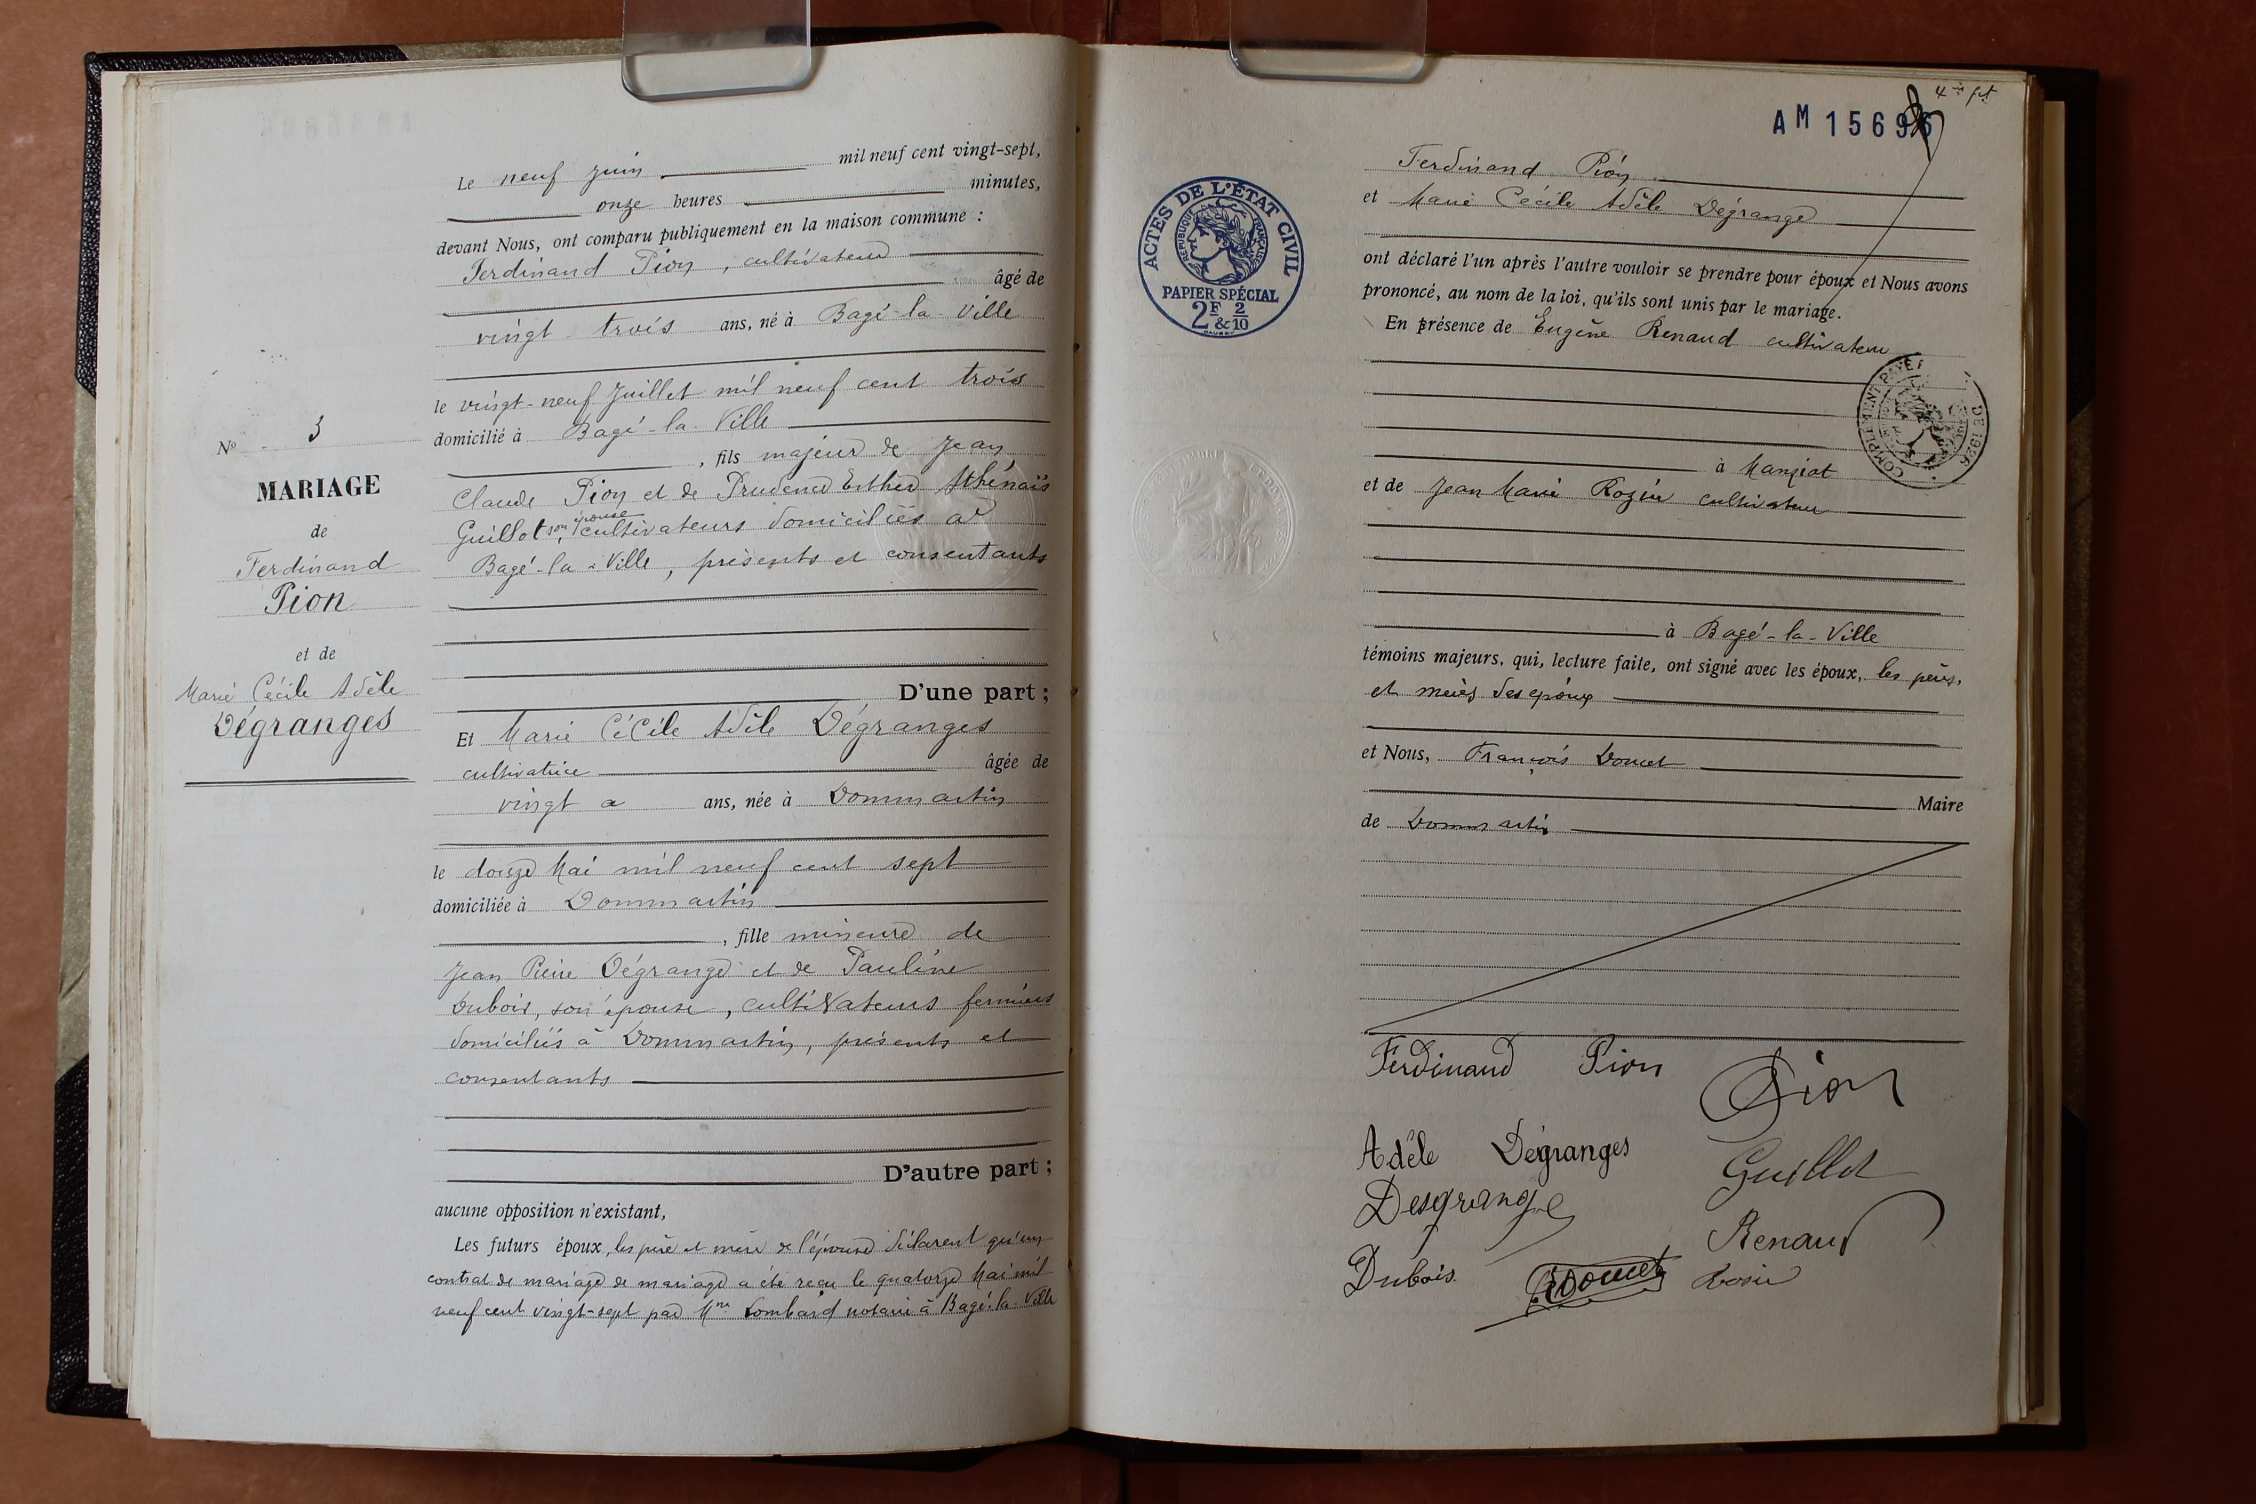 Le neuf juin mil neuf cent vingt-sept,
onze heures minutes,
devant Nous, ont comparu publiquement en la maison commune :
Ferdinand Pion, cultivateur
âgé de
vingt trois ans, né à Bagé-la-Ville
le vingt-neuf Juillet mil neuf cent trois
domicilié à Bagé-la-Ville
, fils majeur de Jean
Claude Pion et de Prudence Esther Athénaïs
Guillot son épouse, cultivateurs domiciliés à
Bagé-la-Ville, présents et consentants
D'une part ;
Et Marie Cécile Adèle Dégranges
cultivatrice âgée de
vingt a ans, née à Dommartin
le douze Mai mil neuf cent sept
domiciliée à Dommartin
, fille mineure de
Jean Pierre Dégrange et de Pauline
Dubois, son épouse, cultivateurs fermiers
domiciliés à Dommartin, présents et
consentants
D'autre part ;
aucune opposition n'existant,
Les futurs époux, les père et mère de l'épouse déclarent qu'un
contrat de mariage de mariage a été reçu le quatorze Mai mil
neuf cent vingt-sept par Me Lombard notaire à Bagé-la-Ville
No 3
MARIAGE
de
Ferdinand
Pion
et de
Marie Cécile Adèle
Dégranges
AM 1569
ACTES DE L'ÉTAT CIVIL
RÉPUBLIQUE FRANÇAISE
PAPIER SPÉCIAL
2F & 2/10
Ferdinand Pion
et Marie Cécile Adèle Dégrange
ont déclaré l'un après l'autre vouloir se prendre pour époux et Nous avons
prononcé, au nom de la loi, qu'ils sont unis par le mariage.
En présence de Eugène Renaud cultivateur
COMPLÉMENT PAYÉ DE 1926
à Manziat
et de Jean Marie Rozier cultivateur
à Bagé-la-Ville
témoins majeurs, qui, lecture faite, ont signé avec les époux, les pères,
et mères des époux
et Nous, François Doucet
Maire
de Dommartin
Ferdinand Pion
Pion
Adèle Dégranges
Guillot
Desgrange
Renaud
Dubois
Doucet